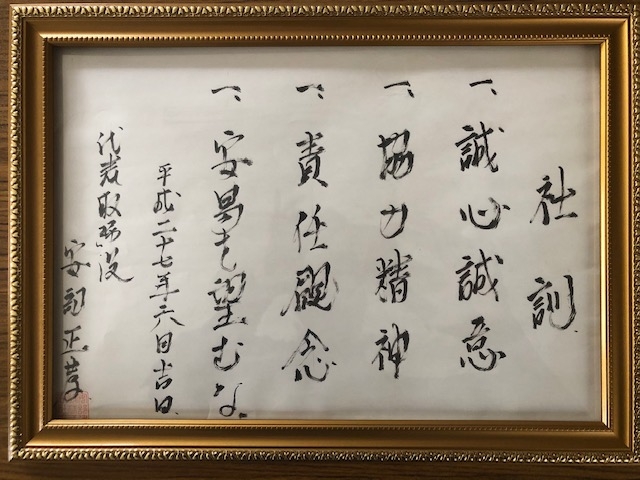 社訓
一、誠心誠意
一、協力精神
一、責任観念
一、安易を望むな
平成二十七年六月吉日
代表取締役
安部正孝